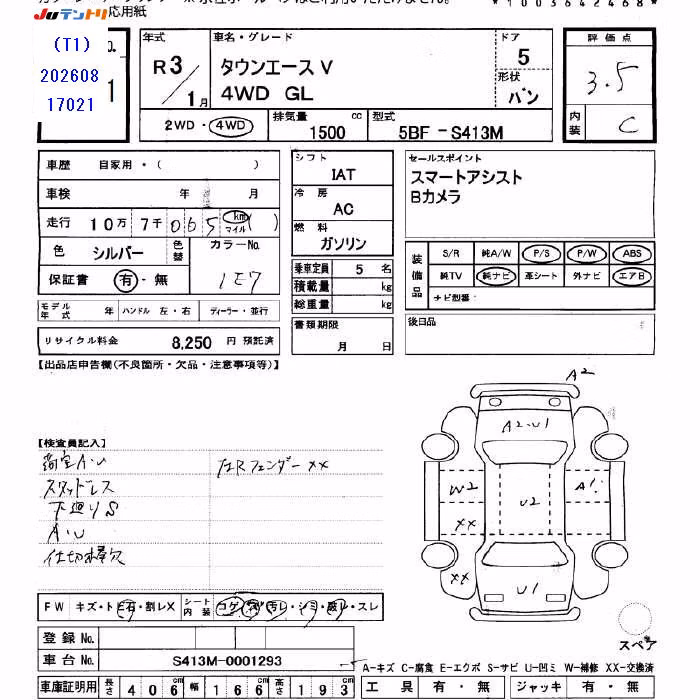 JUテントリ
応用紙
*1003642468*
(T1)
202608
17021
No.
1
年式
R3
1月
車名・グレード
タウンエースV
4WD GL
ドア
5
形状
バン
評価点
3.5
内装
C
2WD・4WD
排気量
1500 cc
型式
5BF-S413M
車歴 自家用・( )
車検 年 月
走行 10万 7千 065 km マイル ( )
色 シルバー
色替
カラーNo.
1E7
保証書 有・無
モデル年式 年
ハンドル 左・右
ディーラー・並行
リサイクル料金 8,250 円 預託済
シフト
IAT
冷房
AC
燃料
ガソリン
乗車定員 5 名
積載量 kg
総重量 kg
書類期限
月 日
セールスポイント
スマートアシスト
Bカメラ
装備品
S/R 純A/W P/S P/W ABS
純TV 純ナビ 革シート 外ナビ エアB
ナビ型番=
後日品
【出品店申告欄(不良箇所・欠品・注意事項等)】
【検査員記入】
荷室A・U
左Rフェンダー××
スタッドレス
下廻りS
A・U
仕切棒欠
FW キズ・トビ石・割レX
シート内装
コゲ・穴・汚レ・シミ・破レ・スレ
A2
A2・U1
W2
U2
A1
XX
XX
U1
スペア
登録No.
車台No. S413M-0001293
A-キズ C-腐食 E-エクボ S-サビ U-凹ミ W-補修 XX-交換済
車庫証明用 長さ 406 cm 幅 166 cm 高さ 193 cm
工具 有・無 ジャッキ 有・無